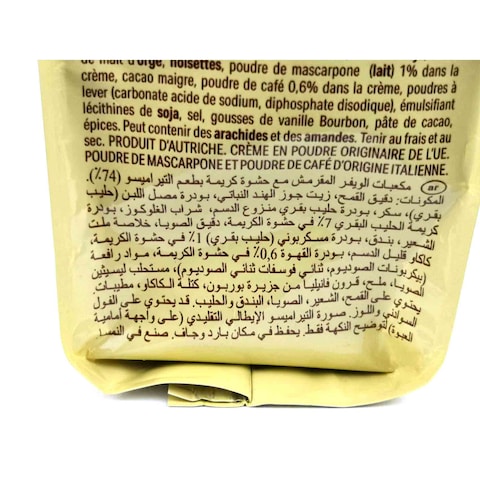 de malt d'orge, noisettes, poudre de mascarpone (lait) 1% dans la
crème, cacao maigre, poudre de café 0,6% dans la crème, poudres à
lever (carbonate acide de sodium, diphosphate disodique), émulsifiant
lécithines de soja, sel, gousses de vanille Bourbon, pâte de cacao,
épices. Peut contenir des arachides et des amandes. Tenir au frais et au
sec. PRODUIT D'AUTRICHE. CRÈME EN POUDRE ORIGINAIRE DE L'UE.
POUDRE DE MASCARPONE ET POUDRE DE CAFÉ D'ORIGINE ITALIENNE.
(ar) مكعبات الويفر المقرمش مع حشوة كريمة بطعم التيراميسو (74٪).
المكونات: دقيق القمح، زيت جوز الهند النباتي، بودرة مصل اللبن (حليب
بقري)، سكر، بودرة حليب بقري منزوع الدسم، شراب الغلوكوز، بودرة
كريمة الحليب البقري 7٪ في حشوة الكريمة، دقيق الصويا، خلاصة ملت
الشعير، بندق، بودرة مسكربوني (حليب بقري) 1٪ في حشوة الكريمة،
كاكاو قليل الدسم، بودرة القهوة 0,6٪ في حشوة الكريمة، مواد رافعة
(بيكربونات الصوديوم، ثنائي فوسفات ثنائي الصوديوم)، مستحلب ليسيثين
الصويا، ملح، قرون فانيليا من جزيرة بوربون، كتلة الكاكاو، مطيبات.
يحتوي على القمح، الشعير، الصويا، البندق والحليب. قد يحتوي على الفول
السوداني واللوز. صورة التيراميسو الإيطالي التقليدي (على واجهة أمامية
العبوة) لتوضيح النكهة فقط. يحفظ في مكان بارد وجاف. صنع في النمسا